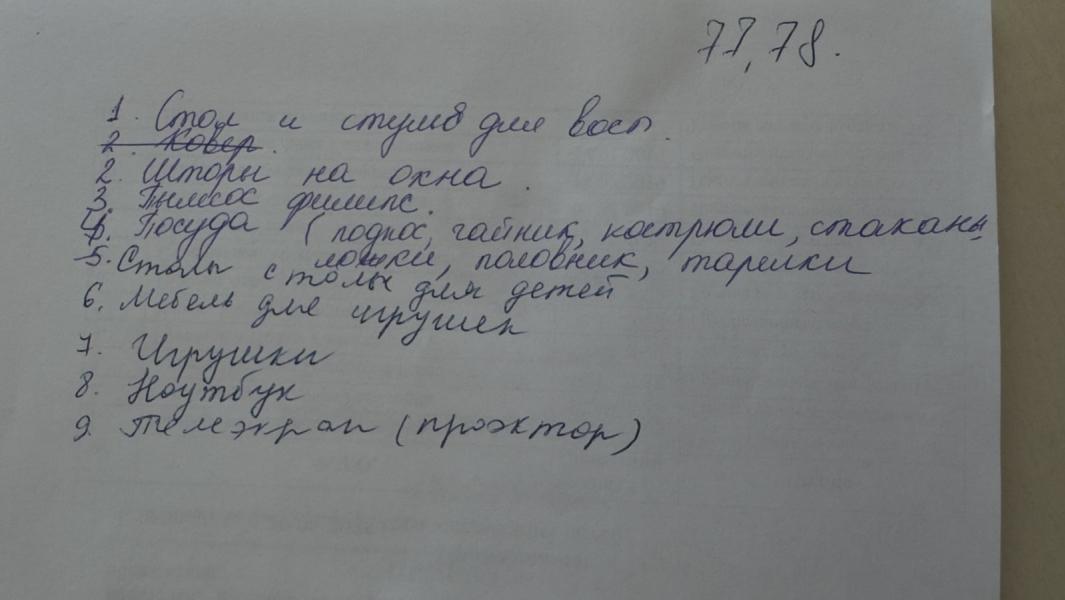 77, 78.
1. Стол и стул для восп.
2. Ковер.
2. Шторы на окна.
3. Пылесос филипс.
4. Посуда (поднос, чайник, кастрюли, стаканы,
ложки, половник, тарелки
5. Столы с для детей
6. Мебель для игрушек
7. Игрушки
8. Ноутбук
9. Телеэкран (проэктор)